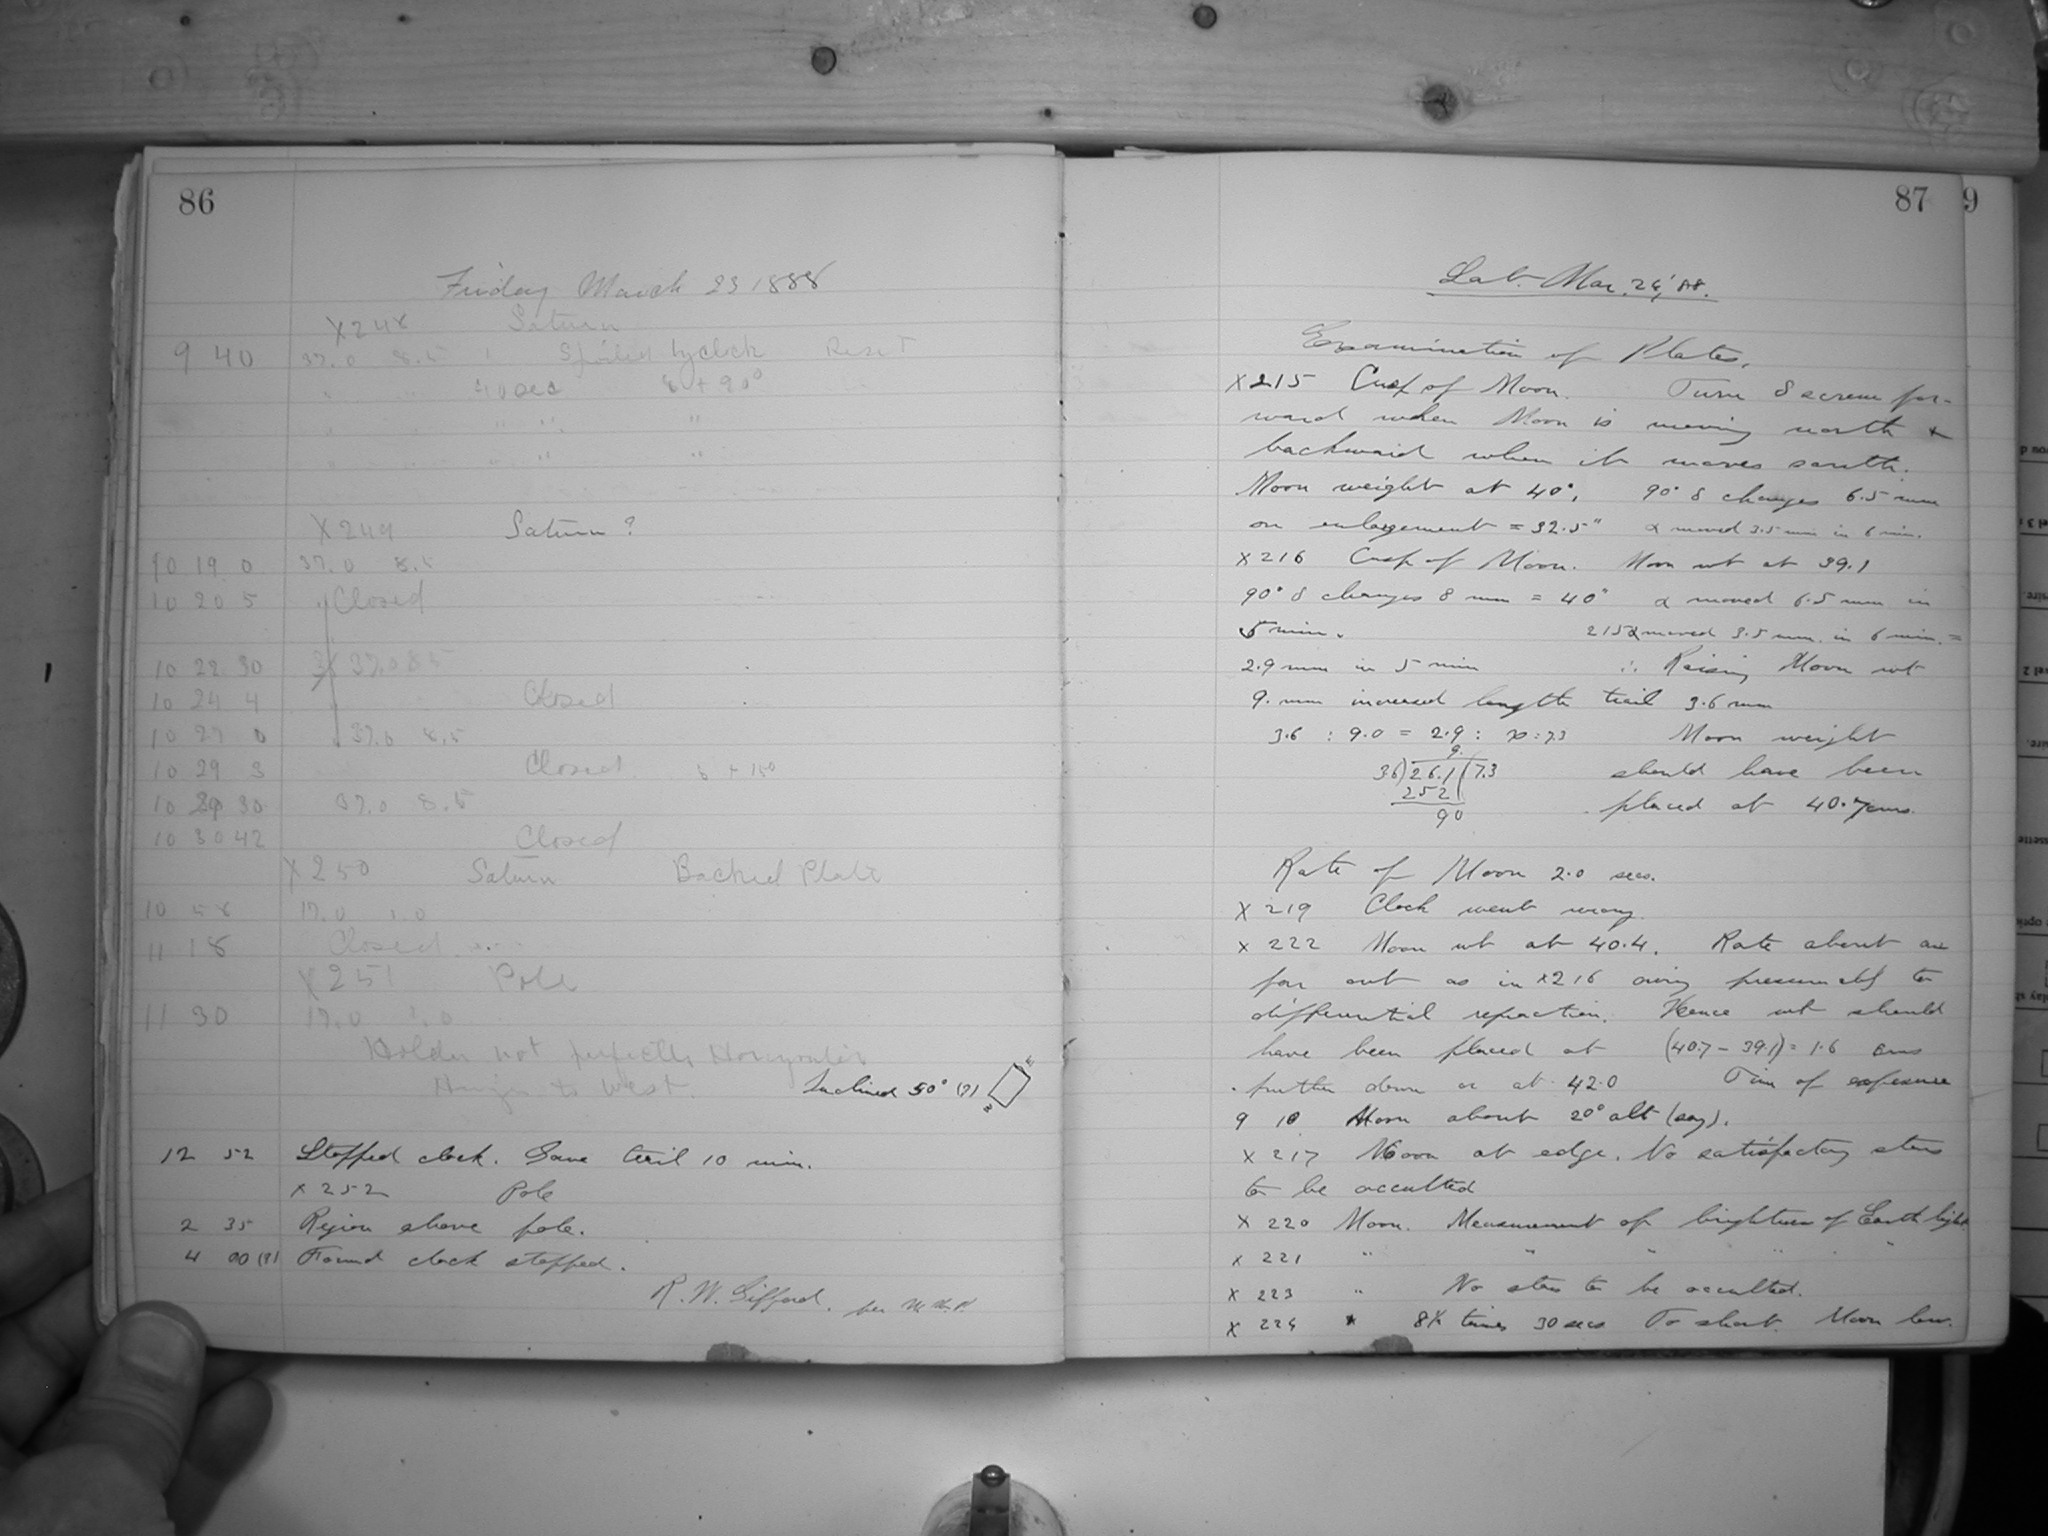 86
Friday March 23 1888
X248 Saturn
9 40 37.0 8.5 1 Spoiled by clock Reset
" " 40 sec δ + 90°
" " " "
" " " "
X249 Saturn?
10 19 0 37.0 8.5
10 20 5 Closed
10 22 30 37.0 8.5
10 24 4 Closed
10 27 0 37.0 8.5
10 29 3 Closed δ + 150
10 29 30 37.0 8.5
10 30 42 Closed
X250 Saturn Backed Plate
10 58 17.0 1.0
11 18 Closed
X251 Pole
11 30 17.0 1.0
Holder not perfectly Horizontal
to West. Inclined 50° (?)
12 52 Stopped clock. Gave trail 10 min.
X252 Pole
2 35 Region above pole.
4 00 (?) Found clock stopped.
R. W. Gifford. per W.H.P.
87 9
Lab. Mar. 24, '88.
Examination of Plates.
X215 Cusp of Moon. Turn δ screw for-
ward when Moon is moving north &
backward when it moves south.
Moon weight at 40°. 90° δ changes 6.5 mm
on enlargement = 32.5" α moved 3.5 mm in 6 min.
X216 Cusp of Moon. Moon wt at 39.1
90° δ changes 8 mm = 40" α moved 6.5 mm in
5 min. 215 α moved 3.5 mm. in 6 min. =
2.9 mm in 5 min ∴ Raising Moon wt
9. mm increased length trail 3.6 mm
3.6 : 9.0 = 2.9 : x : 7.3 Moon weight
9.
36)26.1(7.3 should have been
252 placed at 40.7 cms.
90
Rate of Moon 2.0 secs.
X219 Clock went wrong.
X222 Moon wt at 40.4. Rate about as
far out as in X216 owing presumably to
differential refraction. Hence wt should
have been placed at (40.7 - 39.1) = 1.6 cms
further down or at 42.0 Time of exposure
9 10 Moon about 20° alt (say).
X217 Moon at edge. No satisfactory stars
to be occulted
X220 Moon. Measurement of brightness of Earth light
X221 " " " " "
X223 " No stars to be occulted.
X224 " 8½ times 30 secs Too short. Moon low.